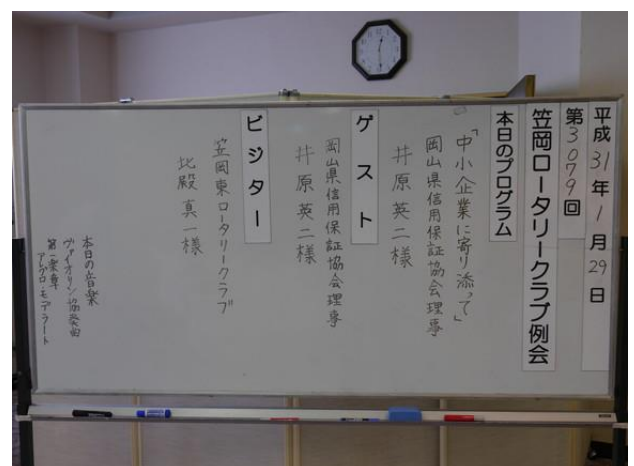 平成31年1月29日
第3079回
笠岡ロータリークラブ例会
本日のプログラム
「中小企業に寄り添って」
岡山県信用保証協会理事
井原英二様
ゲスト
岡山県信用保証協会理事
井原英二様
ビジター
笠岡東ロータリークラブ
北殿真一様
本日の音楽
ヴァイオリン協奏曲
第一楽章
アレグロ・モデラート